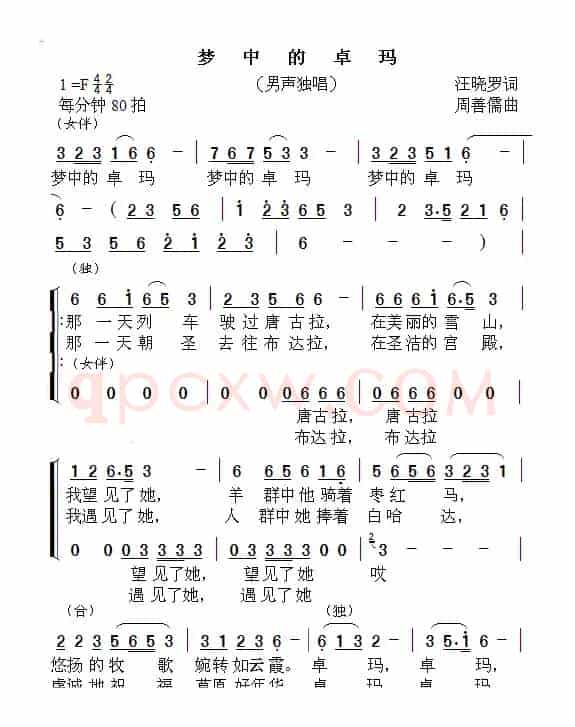 梦 中 的 卓 玛
1=F 4/4 2/4 （男声独唱） 汪晓罗词
每分钟 80 拍 周善儒曲
（女伴）
3 2 3 1 6 6 － | 7 6 7 5 3 3 － | 3 2 3 5 1 6 － |
梦中的 卓 玛 梦中的 卓 玛 梦中的 卓 玛
6 － （ 2 3 5 6 | 1 2 3 6 5 6 | 2 3·5 2 1 6 |
5 3 5 6 2 1 2 2 3 2 | 6 － － － ） |
（独）
6 6 1 6 5 3 | 2 3 5 5 6 － | 6 6 1 6·5 3 |
那 一天列 车 驶 过 唐 古 拉， 在美丽的 雪 山，
那 一天朝 圣 去 往 布 达 拉， 在圣洁的 宫 殿，
（女伴）
0 0 0 0 | 0 0 0 6 6 6 | 0 0 6 6 6 0 0 |
唐古拉， 唐古拉
布达拉， 布达拉
qpcxw.COM
1 2 6·5 3 | 6 6 5 6 1 6 | 5 6 5 6 3 2 3 1 |
我望 见了 她， 羊 群中 他 骑着 枣 红 马，
我遇 见了 她， 人 群中 她 捧着 白 哈 达，
0 0 0 3 3 3 3 3 | 0 0 0 3 3 3 | 2 3 － － － |
望 见了她， 望 见了她 哎
遇 见了她， 遇 见了她
（合） （独）
2 2 3 5 6 5 3 | 2 2 3 5 5 6 | 6 1 3 3 | 3 5·1 6 |
悠扬 的 牧 歌 婉转 如云霞。 卓 玛， 卓 玛，
虔诚 地 祝 福 草原 好年华